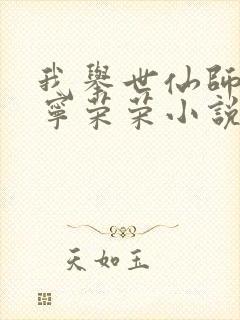 我舉世仙師
寧荣荣小說
天如玉